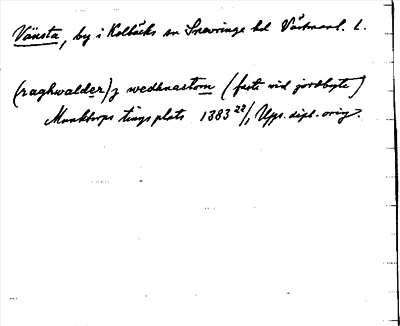 Vänsta, by i Kolbäcks sn Snevringe hd Västmanl. l.
(raghwalder) j wedhnastom (faste vid jordbyte)
Munktorps tings plats 1383 22/1 Upps. dipl. orig.